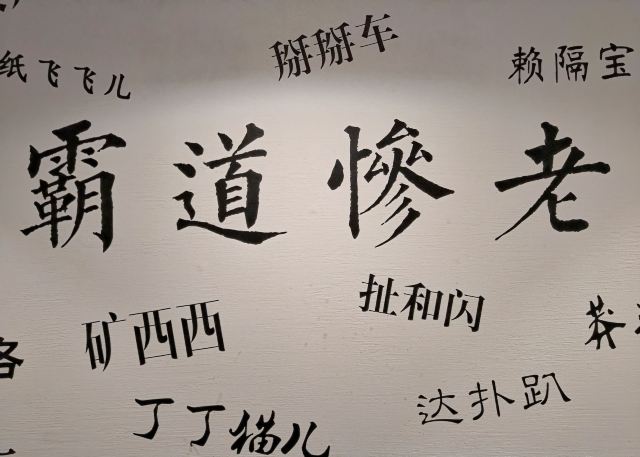 掰掰车
纸飞飞儿
赖隔宝
霸道惨老
扯和闪
矿西西
莽
各
达扑趴
丁丁猫儿